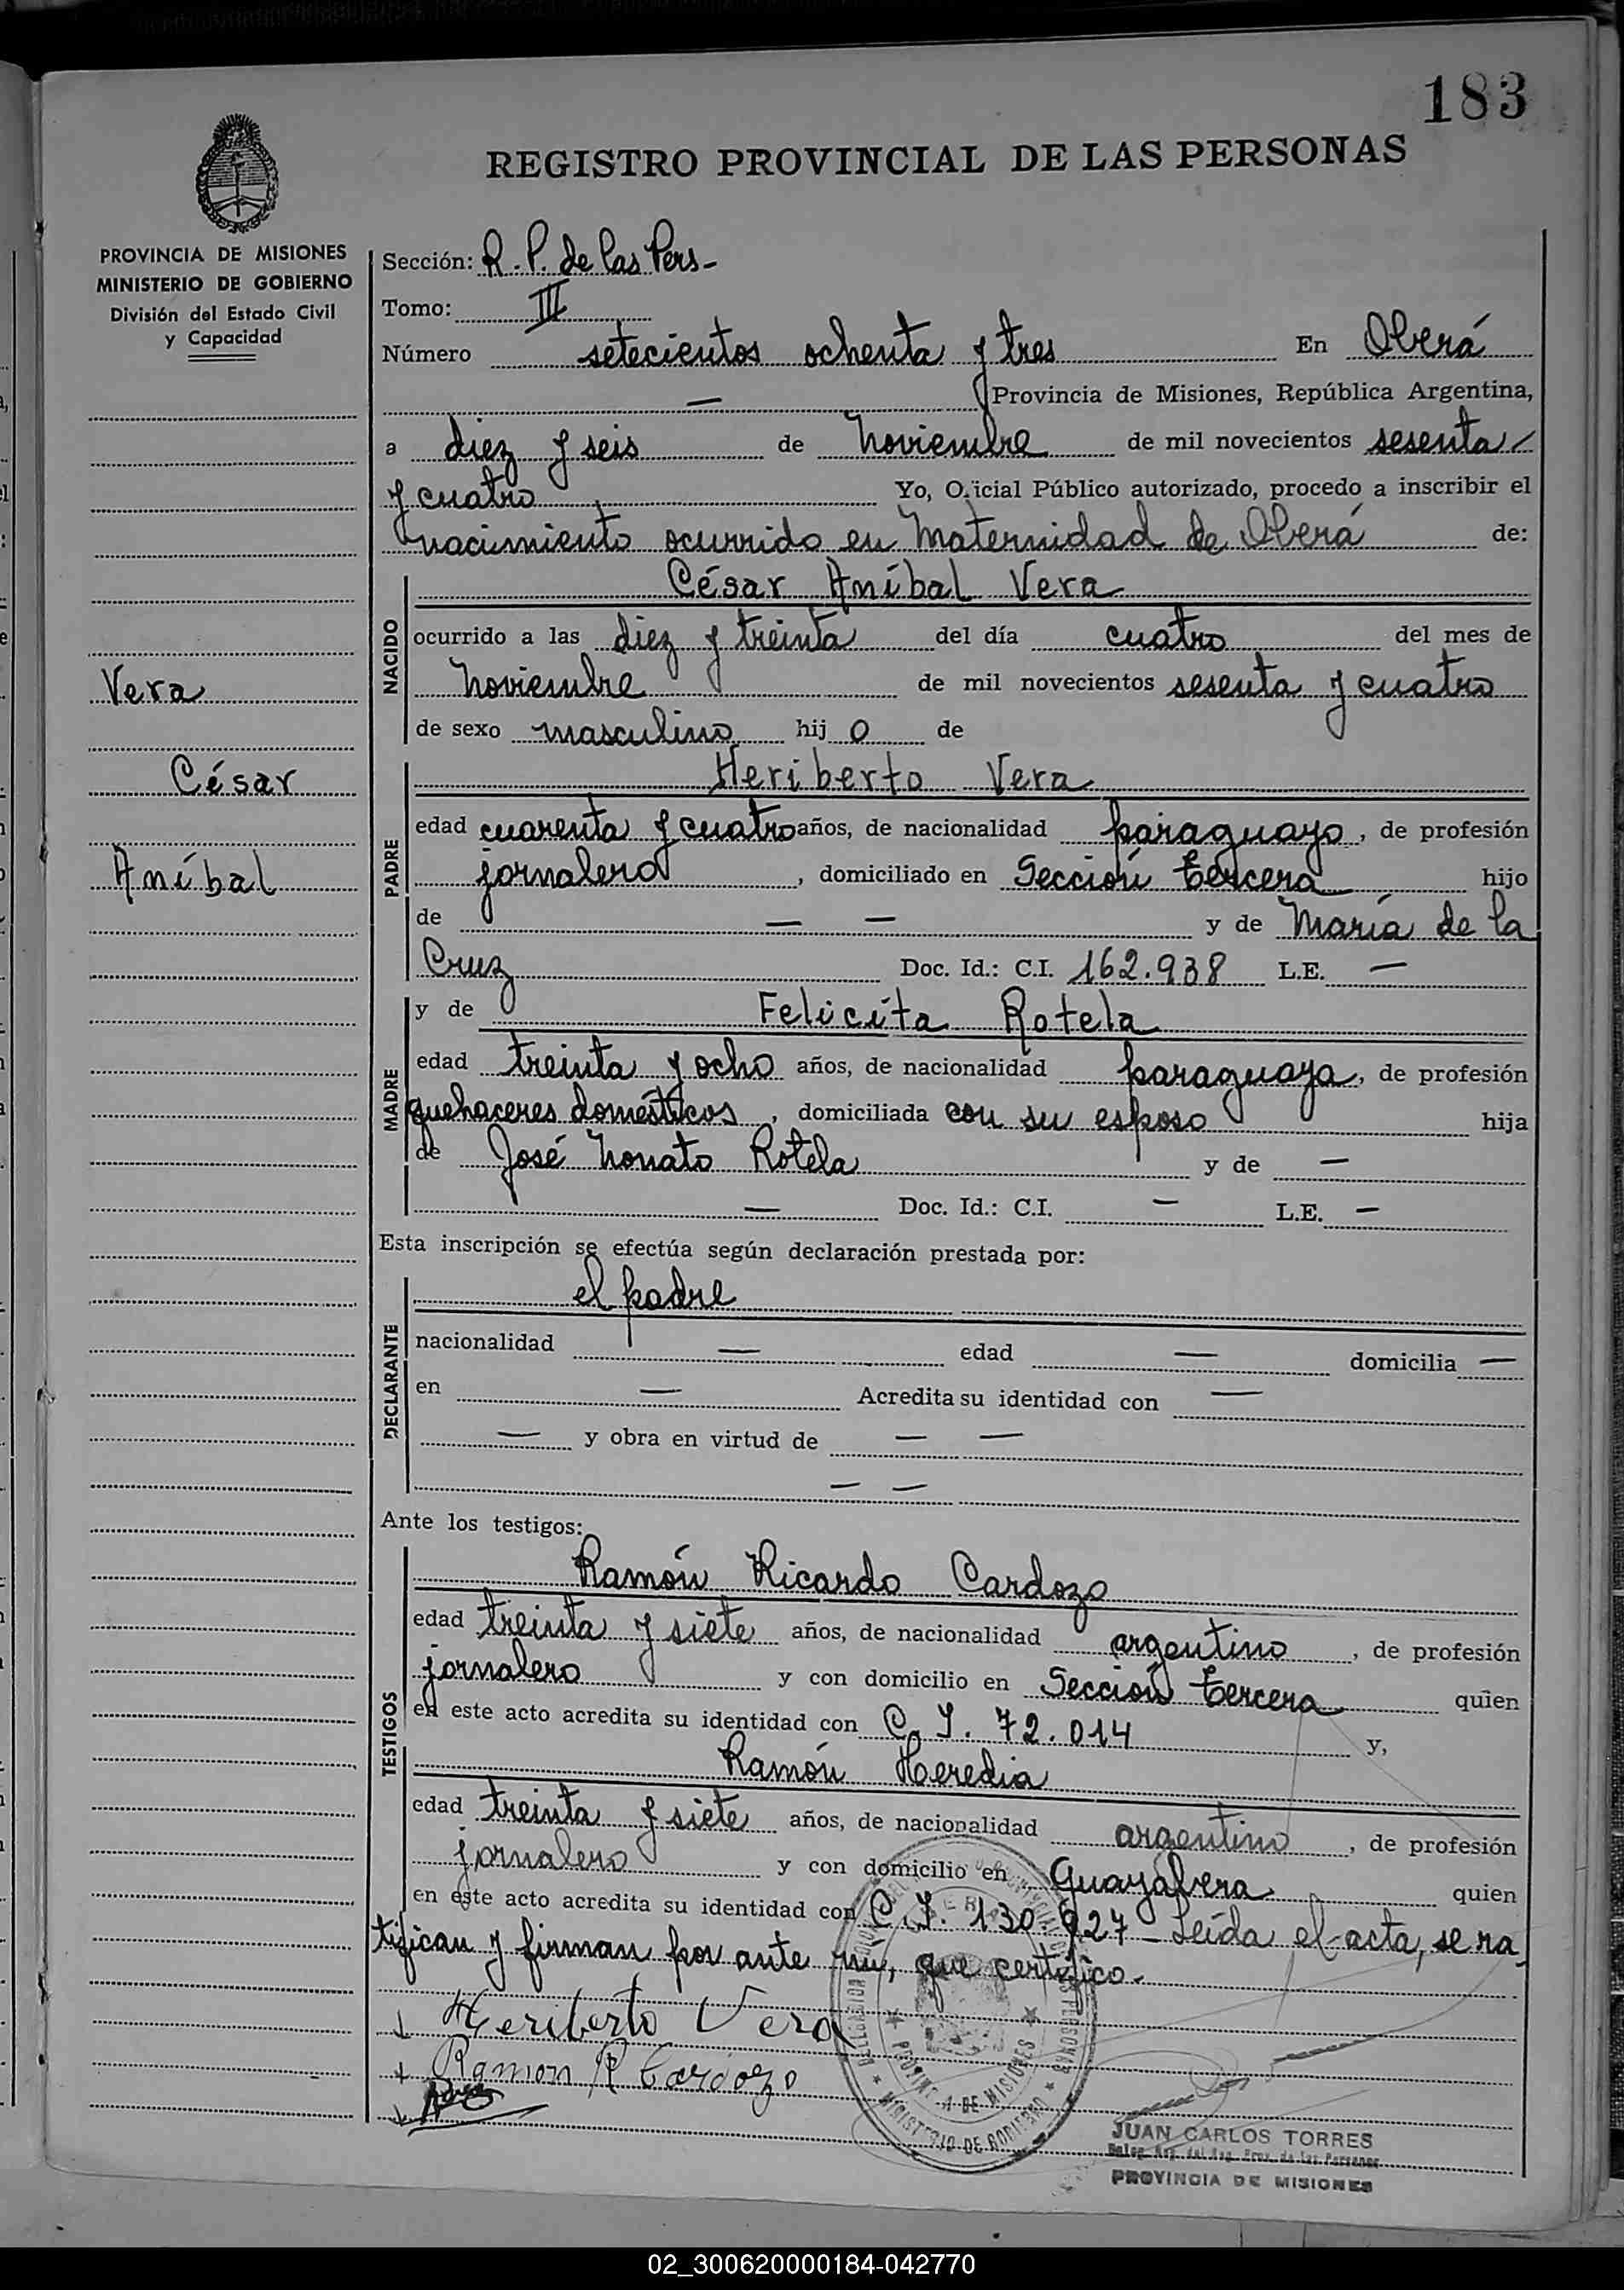 183
REGISTRO PROVINCIAL DE LAS PERSONAS
PROVINCIA DE MISIONES
MINISTERIO DE GOBIERNO
División del Estado Civil
y Capacidad
Vera
César
Aníbal
Sección: R. P. de las Pers-
Tomo: III
Número setecientos ochenta y tres En Oberá
— Provincia de Misiones, República Argentina,
a diez y seis de noviembre de mil novecientos sesenta
y cuatro Yo, Oficial Público autorizado, procedo a inscribir el
nacimiento ocurrido en Maternidad de Oberá de:
NACIDO
César Aníbal Vera
ocurrido a las diez y treinta del día cuatro del mes de
noviembre de mil novecientos sesenta y cuatro
de sexo masculino hij o de
PADRE
Heriberto Vera
edad cuarenta y cuatro años, de nacionalidad paraguayo, de profesión
jornalero, domiciliado en Sección tercera hijo
de — — y de María de la
Cruz Doc. Id.: C.I. 162.938 L.E. —
MADRE
y de Felicíta Rotela
edad treinta y ocho años, de nacionalidad paraguaya, de profesión
quehaceres domésticos, domiciliada con su esposo hija
de José Nonato Rotela y de —
— Doc. Id.: C.I. — L.E. —
Esta inscripción se efectúa según declaración prestada por:
DECLARANTE
el padre
nacionalidad — edad — domicilia —
en — Acredita su identidad con —
— y obra en virtud de — —
— —
Ante los testigos:
TESTIGOS
Ramón Ricardo Cardozo
edad treinta y siete años, de nacionalidad argentino, de profesión
jornalero y con domicilio en Sección tercera quien
en este acto acredita su identidad con C. I. 72.014 y,
Ramón Heredia
edad treinta y siete años, de nacionalidad argentino, de profesión
jornalero y con domicilio en Guayabera quien
en este acto acredita su identidad con C. I. 130.927 - Leída el acta, se ra
tifican y firman por ante mí, que certifico.-
Heriberto Vera
Ramon R Cardozo
PROVINCIA DE MISIONES
MINISTERIO DE GOBIERNO
JUAN CARLOS TORRES
PROVINCIA DE MISIONES
02_300620000184-042770